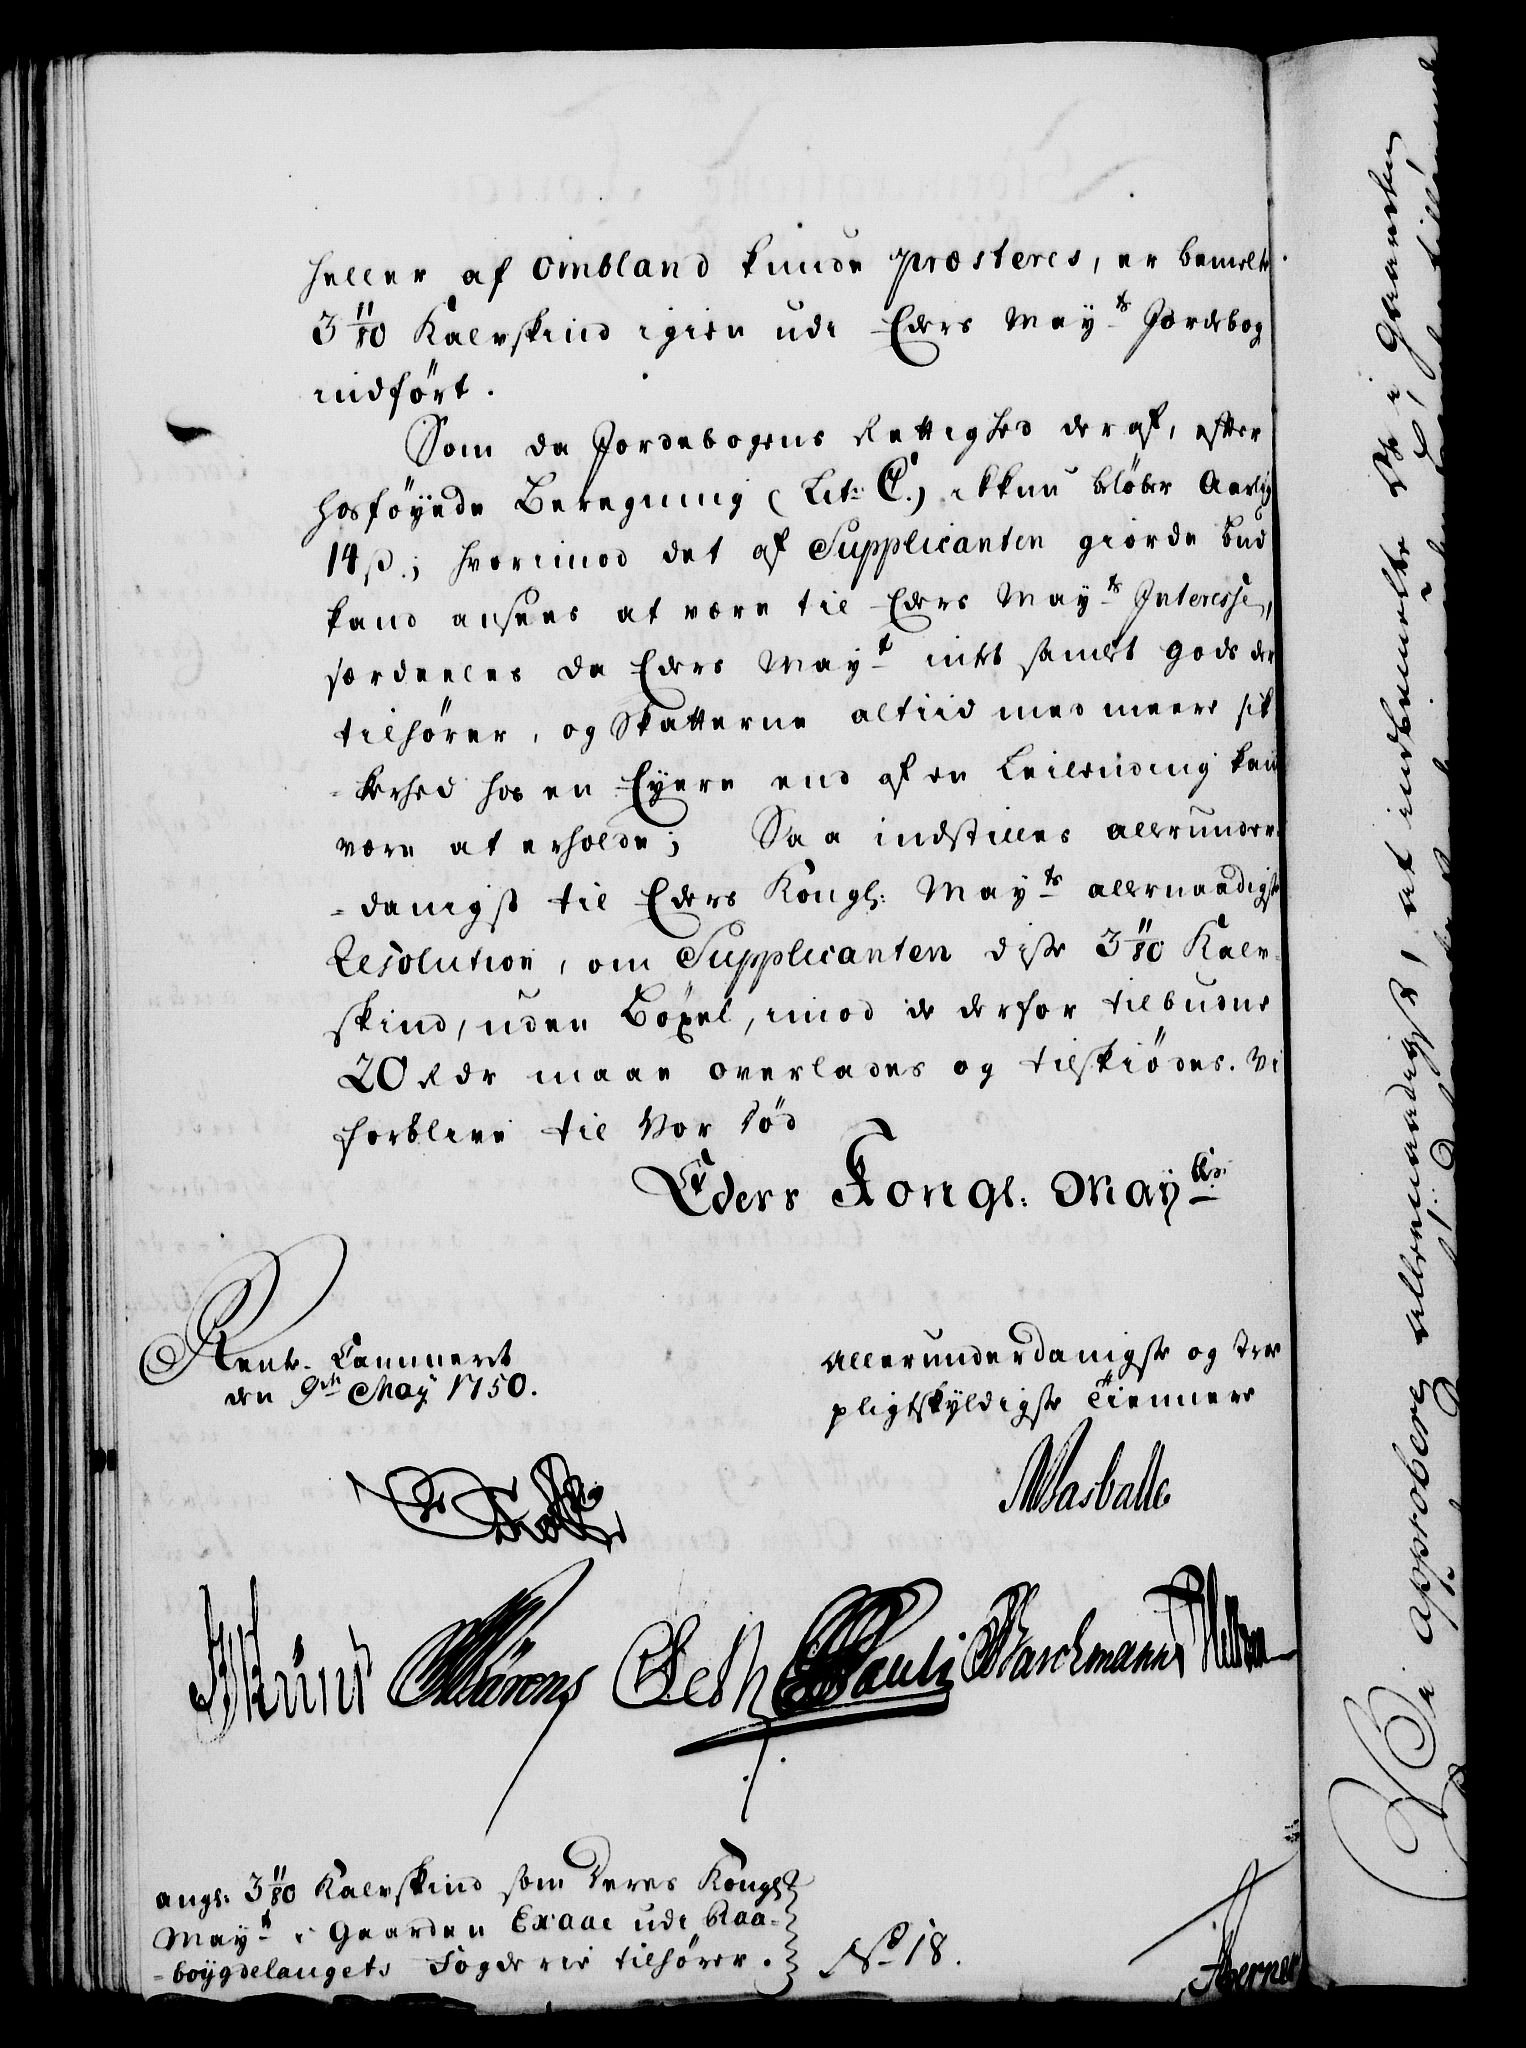 heller af Ombland kunde præsteres, er bemelte
3 11/80 Kalvskind igien udi Eders Mayts Jordebog
indført.
Som da Jordebogens Rettighed deraf, efter
hosføyede Beregning (Lit: C.) ikkun beløber Aarlig
14 ß.; hvorimod det af Supplicanten giorde bud
kand ansees at være til Eders Mayts Interesse,
særdeeles da Eders Mayt intet samlet gods der
tilhører, og Skatterne altiid med meere sik-
-kerhed hos en Eyere end af en Leilending kan
være at erholde; Saa indstilles allerunder-
-danigst til Eders Kongl: Mayts allernaadigste
Resolution, om Supplicanten disse 3 11/80 Kalv-
skind, uden Bøxel, imod de derfor tilbudne
20 Rdr maae overlades og tilskiødes. Vi
forblive til Vor Død
Eders Kongl: Mayts
Rente-Cammeret
den 9de May 1750.
Allerunderdanigste og troe
pligtskyldigste Tiennere
Masballe
Selth Pauli
angl: 3 11/80 Kalvskind som Deres Kongl
Mayt i Gaarden Exaae udi Raa-
-bøygdelaugets Fogderie tilhører.
No 18.
Vi approbere allernaadigst, at indbemelte De i Gaarden